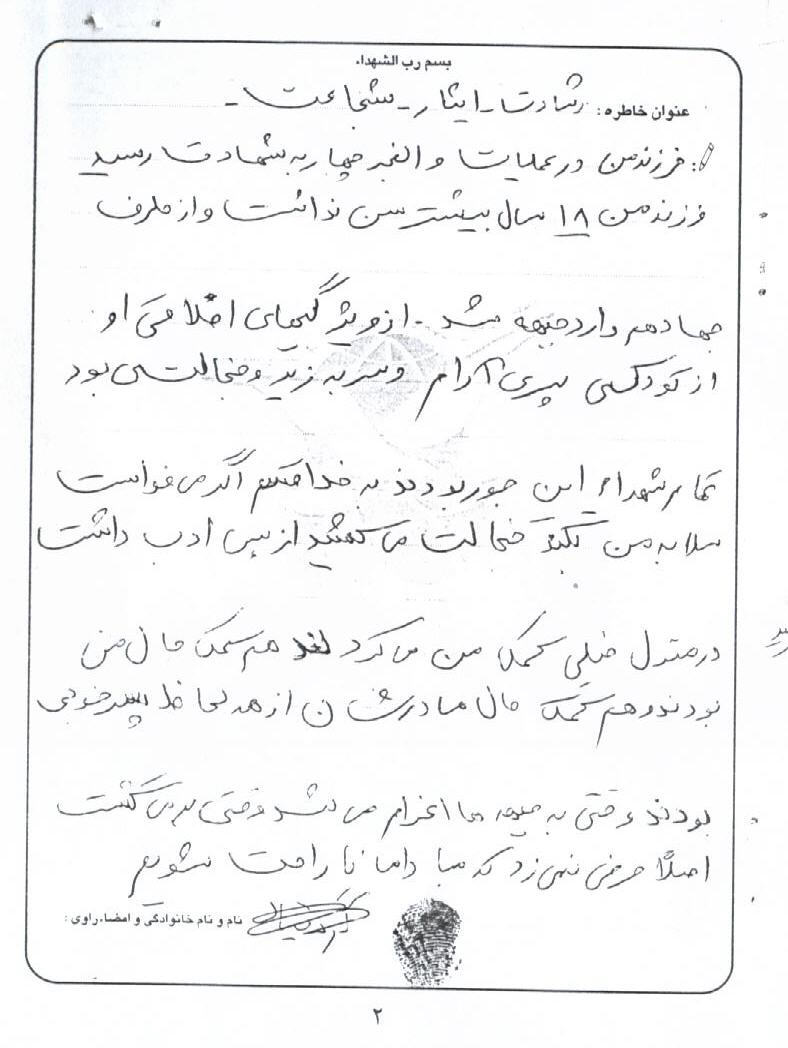 بسم رب الشهداء
عنوان خاطره: رشادت - ایثار - شجاعت -
: فرزند من در عملیات والفجر چهار به شهادت رسید
فرزند من ۱۸ سال بیشتر سن نداشت و از طرف
جهاد هم وارد جبهه شد - از ویژگیهای اخلاقی او
از کودکی پسری آرام و سر به زیر و خجالتی بود
تمام شهداء این جور بودند به خدا قسم اگر می خواست
سلام به من بکند خجالت می کشید از بس ادب داشت
در منزل خیلی کمک من می کرد هم کمک حال من
بودند و هم کمک حال مادرشان از هر لحاظ پسر خوبی
بودند وقتی به جبهه ها اعزام می شد وقتی بر می گشت
اصلاً حرفی نمی زد که مبادا ما ناراحت شویم
نام و نام خانوادگی و امضاء راوی :
۲